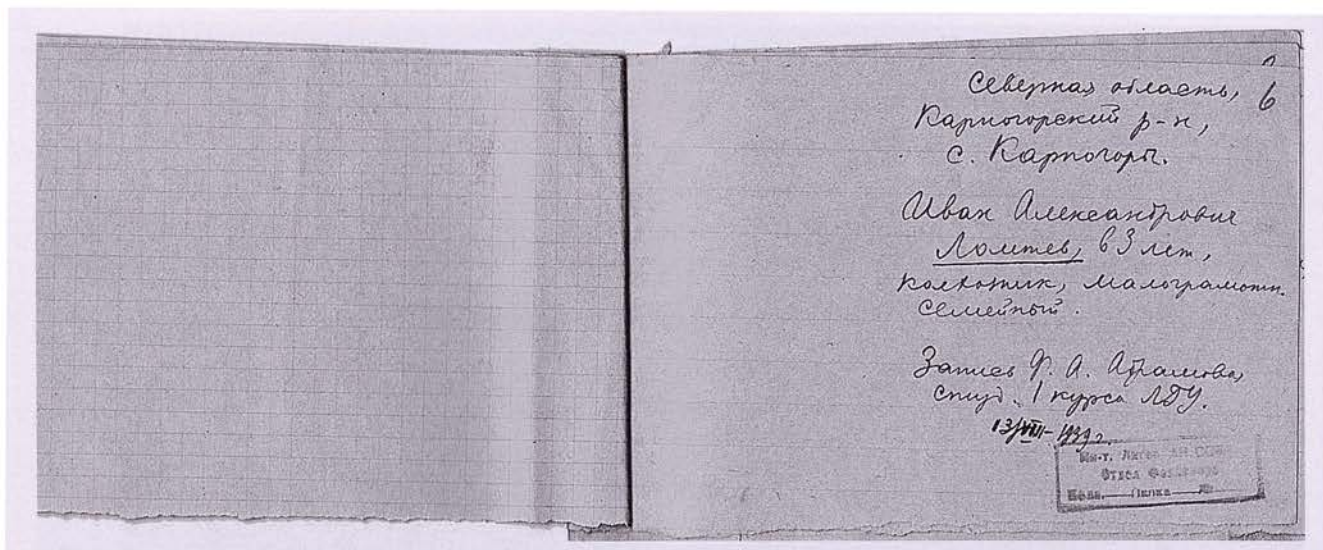 6
Северная область,
Карпогорский р-н,
с. Карпогоры.
Иван Александрович
Ломтев, 63 лет,
колхозник, малограмотн.
семейный.
Запись Ф. А. Абрамова,
студ. 1 курса ЛГУ.
13/VIII-1939 г.
Ин-т. Литер. АН СССР
Отдел Фольклора
Колл. Папка №